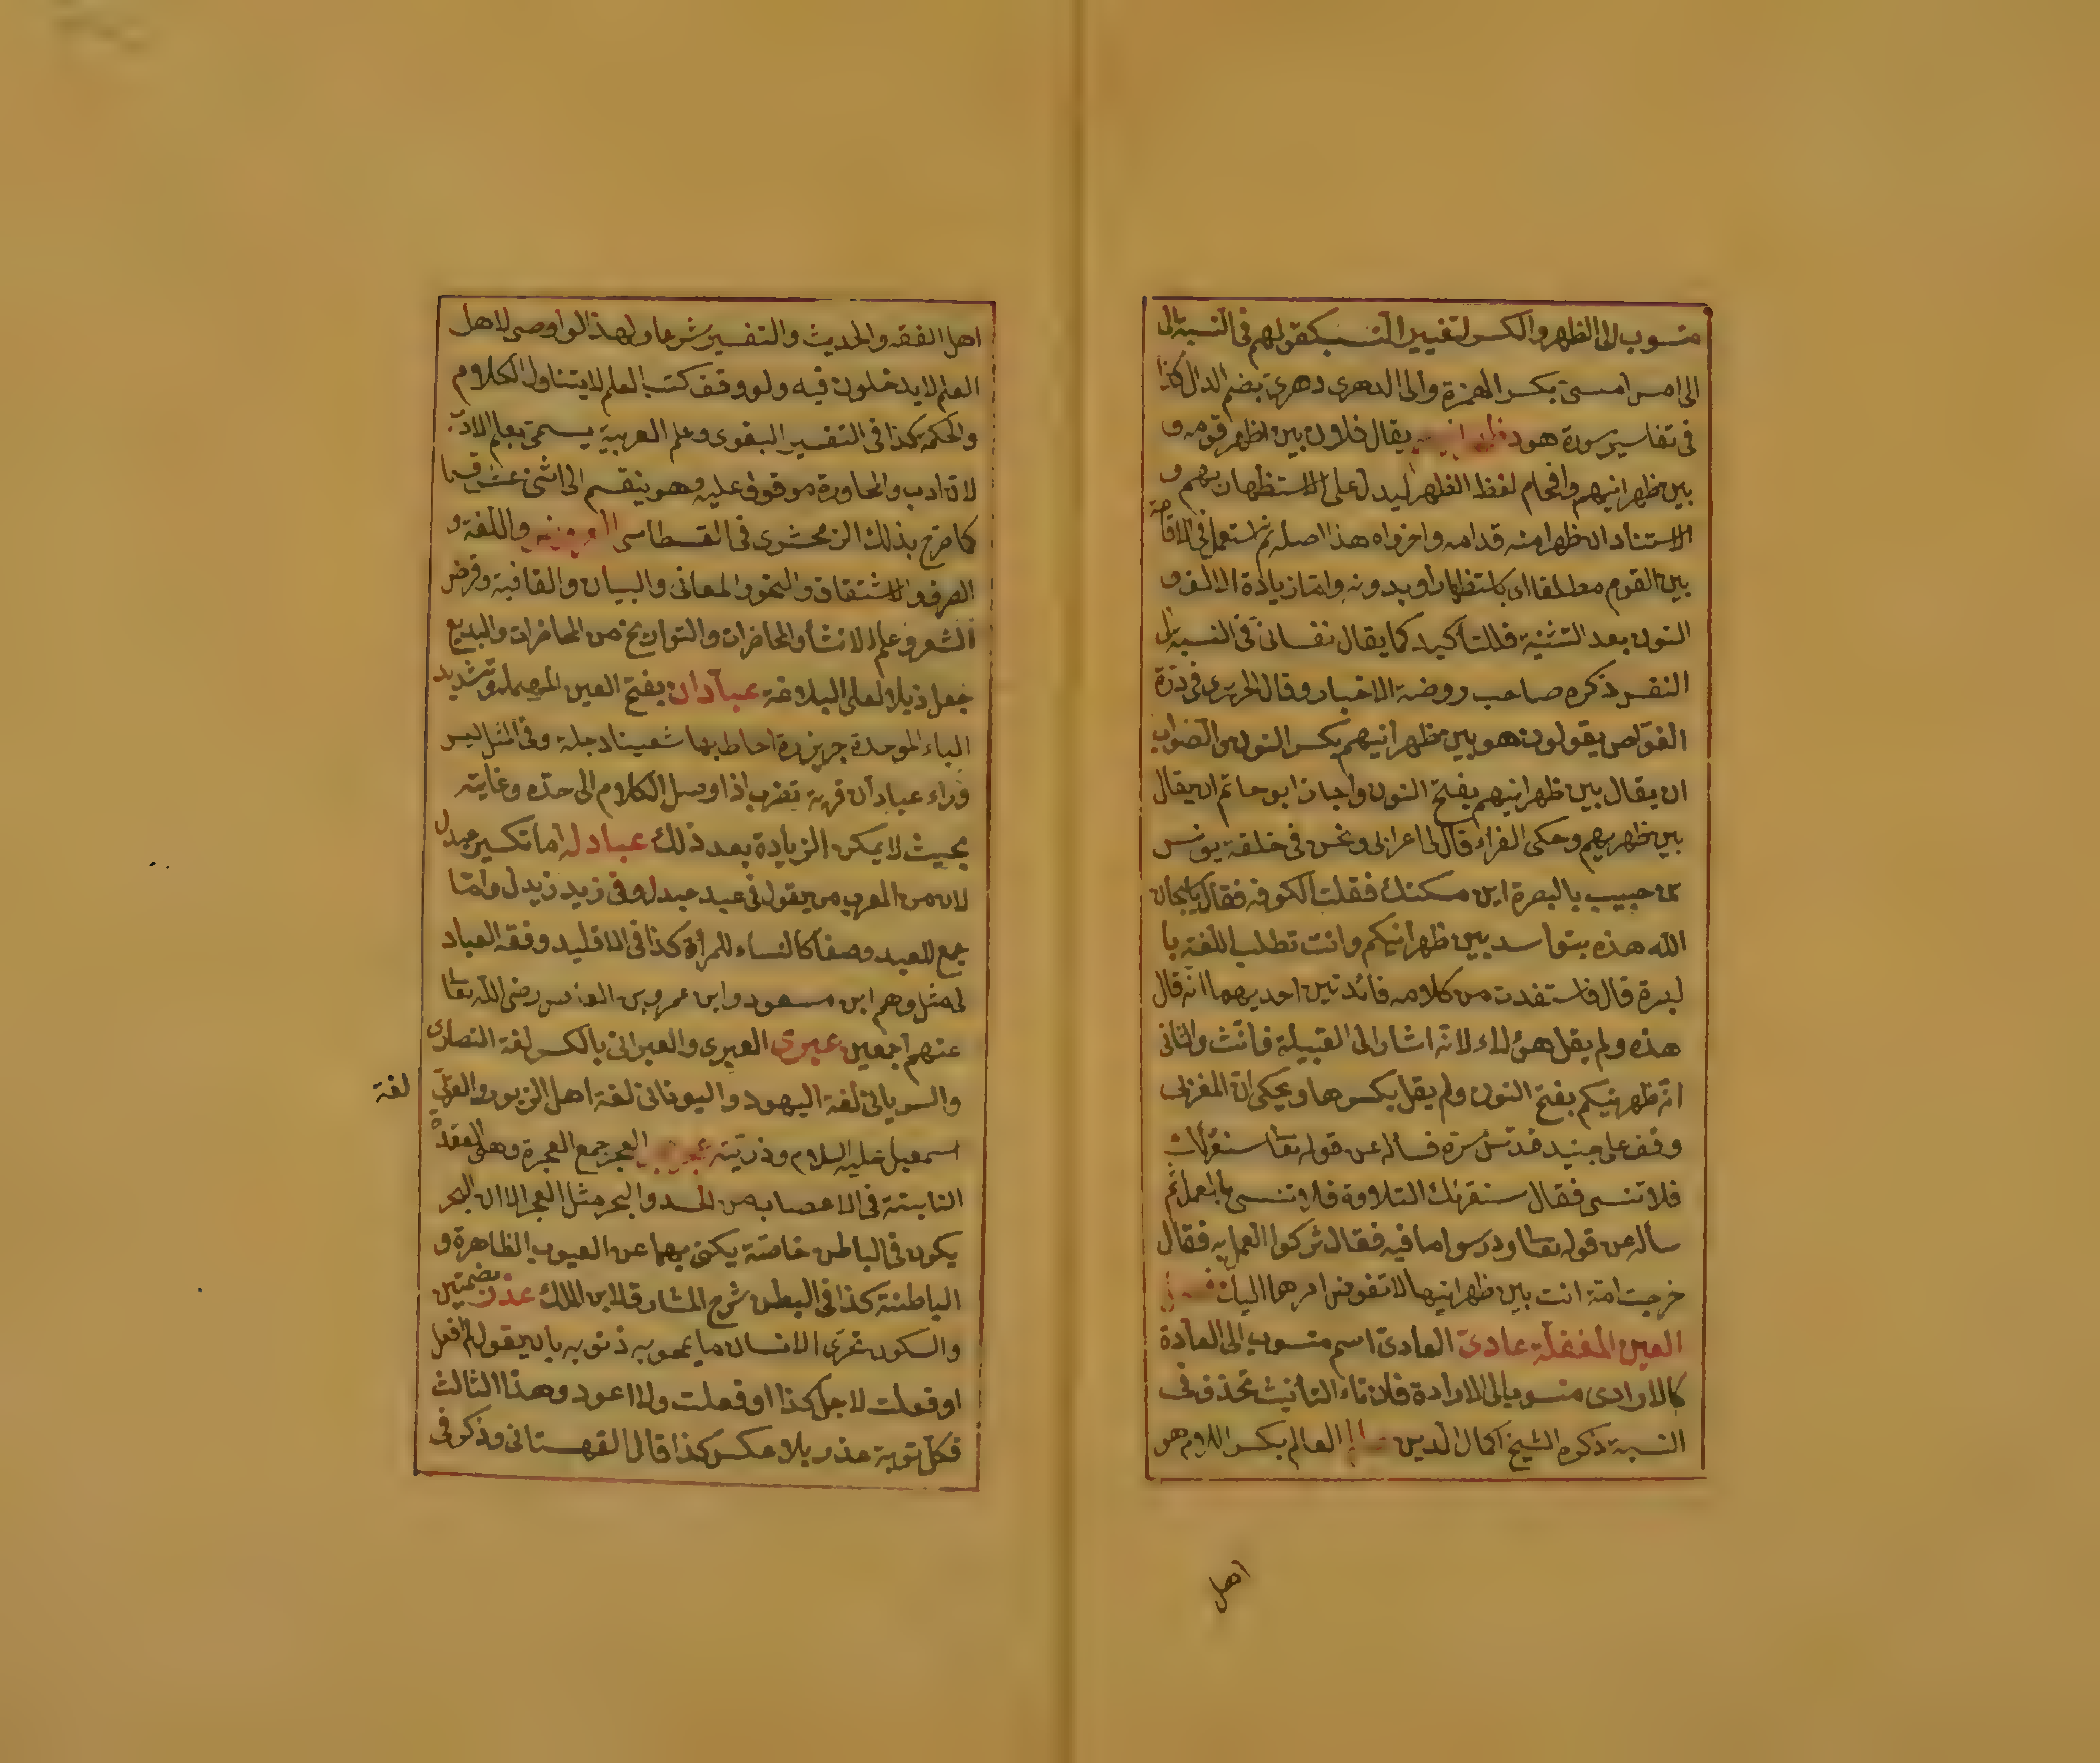 منسوب الى الظهر والكسر لتغيير النسب كقولهم فى النسبة الى
الى امس امسىّ بكسر الهمزة والى الدهرى دهرىّ بضم الدال كذا
فى تفاسير سورة هود يقال فلان بين اظهر قومه و
بين ظهرانيهم واقحام لفظ الظهر ليدل على الاستظهار بهم و
الاستناد ان ظهرا منه قدامه واخر وراه هذا اصله ثم استعمل فى الاقامة
بين القوم مطلقا اى باستظهار او بدونه وانما زيادة الالف و
النون بعد التثنية فللتأكيد كما يقال نفسانىّ فى النسبة الى
النفس ذكره صاحب روضة الاخبار وقال الحريرى فى درّة
الغوّاص يقولون هو بين ظهرانيهم بكسر النون والصواب
ان يقال بين ظهرانيهم بفتح النون واجاز ابو حاتم ان يقال
بين ظهريهم وحكى الفراء قال لى اعرابى ونحن فى حلقة يونس
بن حبيب بالبصرة اين مسكنك فقلت الكوفه فقال يا سبحان
الله هذه بنو اسد بين ظهرانيكم وانت تطلب اللغة با
لبصرة قال فاستفدت من كلامه فائدتين احديهما انه قال
هذه ولم يقل هؤلاء لانه اشار الى القبيلة فانّث والثانى
انه ظهرنيكم بفتح النون ولم يقل بكسرها ويحكى ان المغربى
وقف على جنيد قدس سره فسأله عن قوله تعا سنقرئك
فلا تنسى فقال سنقرئك التلاوة فلا تنسى بالعمل ثم
سأله عن قوله تعا ودرسوا ما فيه فقال تركوا العمل به فقال
خرجت امّة انت بين ظهرانيها لا تفوض امرها اليك
العين المغفلة عادىّ العادىّ اسم منسوب الى العادة
كالارادى منسوب الى الارادة فان تاء التأنيث تحذف فى
النسبة ذكره الشيخ اكمال الدين العالم بكسر اللام هو
اهل
اهل الفقه والحديث والتفسير شرعا ولهذا لو اوصى لاهل
العلم لا يدخلون فيه ولو وقف كتب العلم لا يتناول الكلام
والحكمة كذا فى التفسير البغوى وعلم العربية يسمى بعلم الادب
لان ادب والمحاورة موقوف عليه وهو ينقسم الى اثنى عشر قسما
كما صرح بذلك الزمخشرى فى القسطاس واللغة و
الصرف والاشتقاق والنحو والمعانى والبيان والقافية وقرض
الشعر وعلم الانشأ والمحاضرات والتواريخ من المحاضرات والبديع
جعل ذيلا لعلم البلاغة عبّادان بفتح العين المهملة وتشديد
الباء الموحدة جزيرة احاط بها شعبتا دجلة وفى المثل ليس
وراء عبادان قرية تضرب اذا وصل الكلام الى حدّه وغايته
بحيث لا يمكن الزيادة بعد ذلك عبادله اما تكسير عبدل
لان من العرب من يقول فى عبد عبدل وفى زيد زيدل وامّا
جمع للعبد وصفا كالنساء للمرأة كذا فى الاقليد وفقه العباد
وهم ابن مسعود وابن عمرو بن العاص رضى الله تعا
عنهم اجمعين عبرى العبرى والعبرانى بالكسر لغة النصارى
والسريانى لغة اليهود واليونانى لغة اهل الزبور والعربى
لغة
اسمعيل عليه السلام وذريّته العجر جمع العجرة وهى العقدة
النابتة فى الاعصاب من الجسد والبجر مثل العجر الا ان البجر
يكون فى الباطن خاصّة يكنى بهما عن العيوب الظاهرة و
الباطنة كذا فى البطن شرح المشارق لابن الملك عذر بضمتين
والسكون تحرّى الانسان ما يمحو به ذنوبه بان يقول لم افعل
او فعلت لاجل كذا او فعلت ولا اعود وهذا الثالث
فكل توبة عذر بلا عكس كذا قال القهستانى وذكر فى